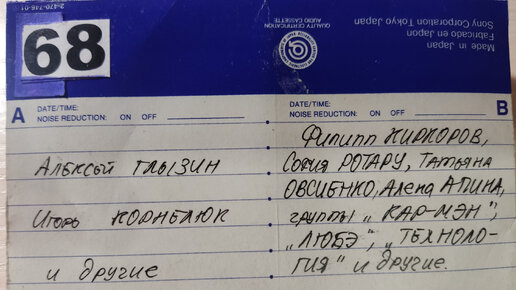 2-470-746-01
Made in Japan
Fabricado en Japon
Sony Corporation Tokyo Japan
QUALITY CERTIFICATION
AUDIO CASSETTE
68
A
DATE/TIME:
NOISE REDUCTION: ON OFF
Алексей ГЛЫЗИН
Игорь КОРНЕЛЮК
и другие
B
DATE/TIME:
NOISE REDUCTION: ON OFF
Филипп КИРКОРОВ,
София РОТАРУ, Татьяна
ОВСИЕНКО, Алена АПИНА,
группы „КАР-МЭН",
„ЛЮБЭ", „ТЕХНОЛО-
ГИЯ" и другие.